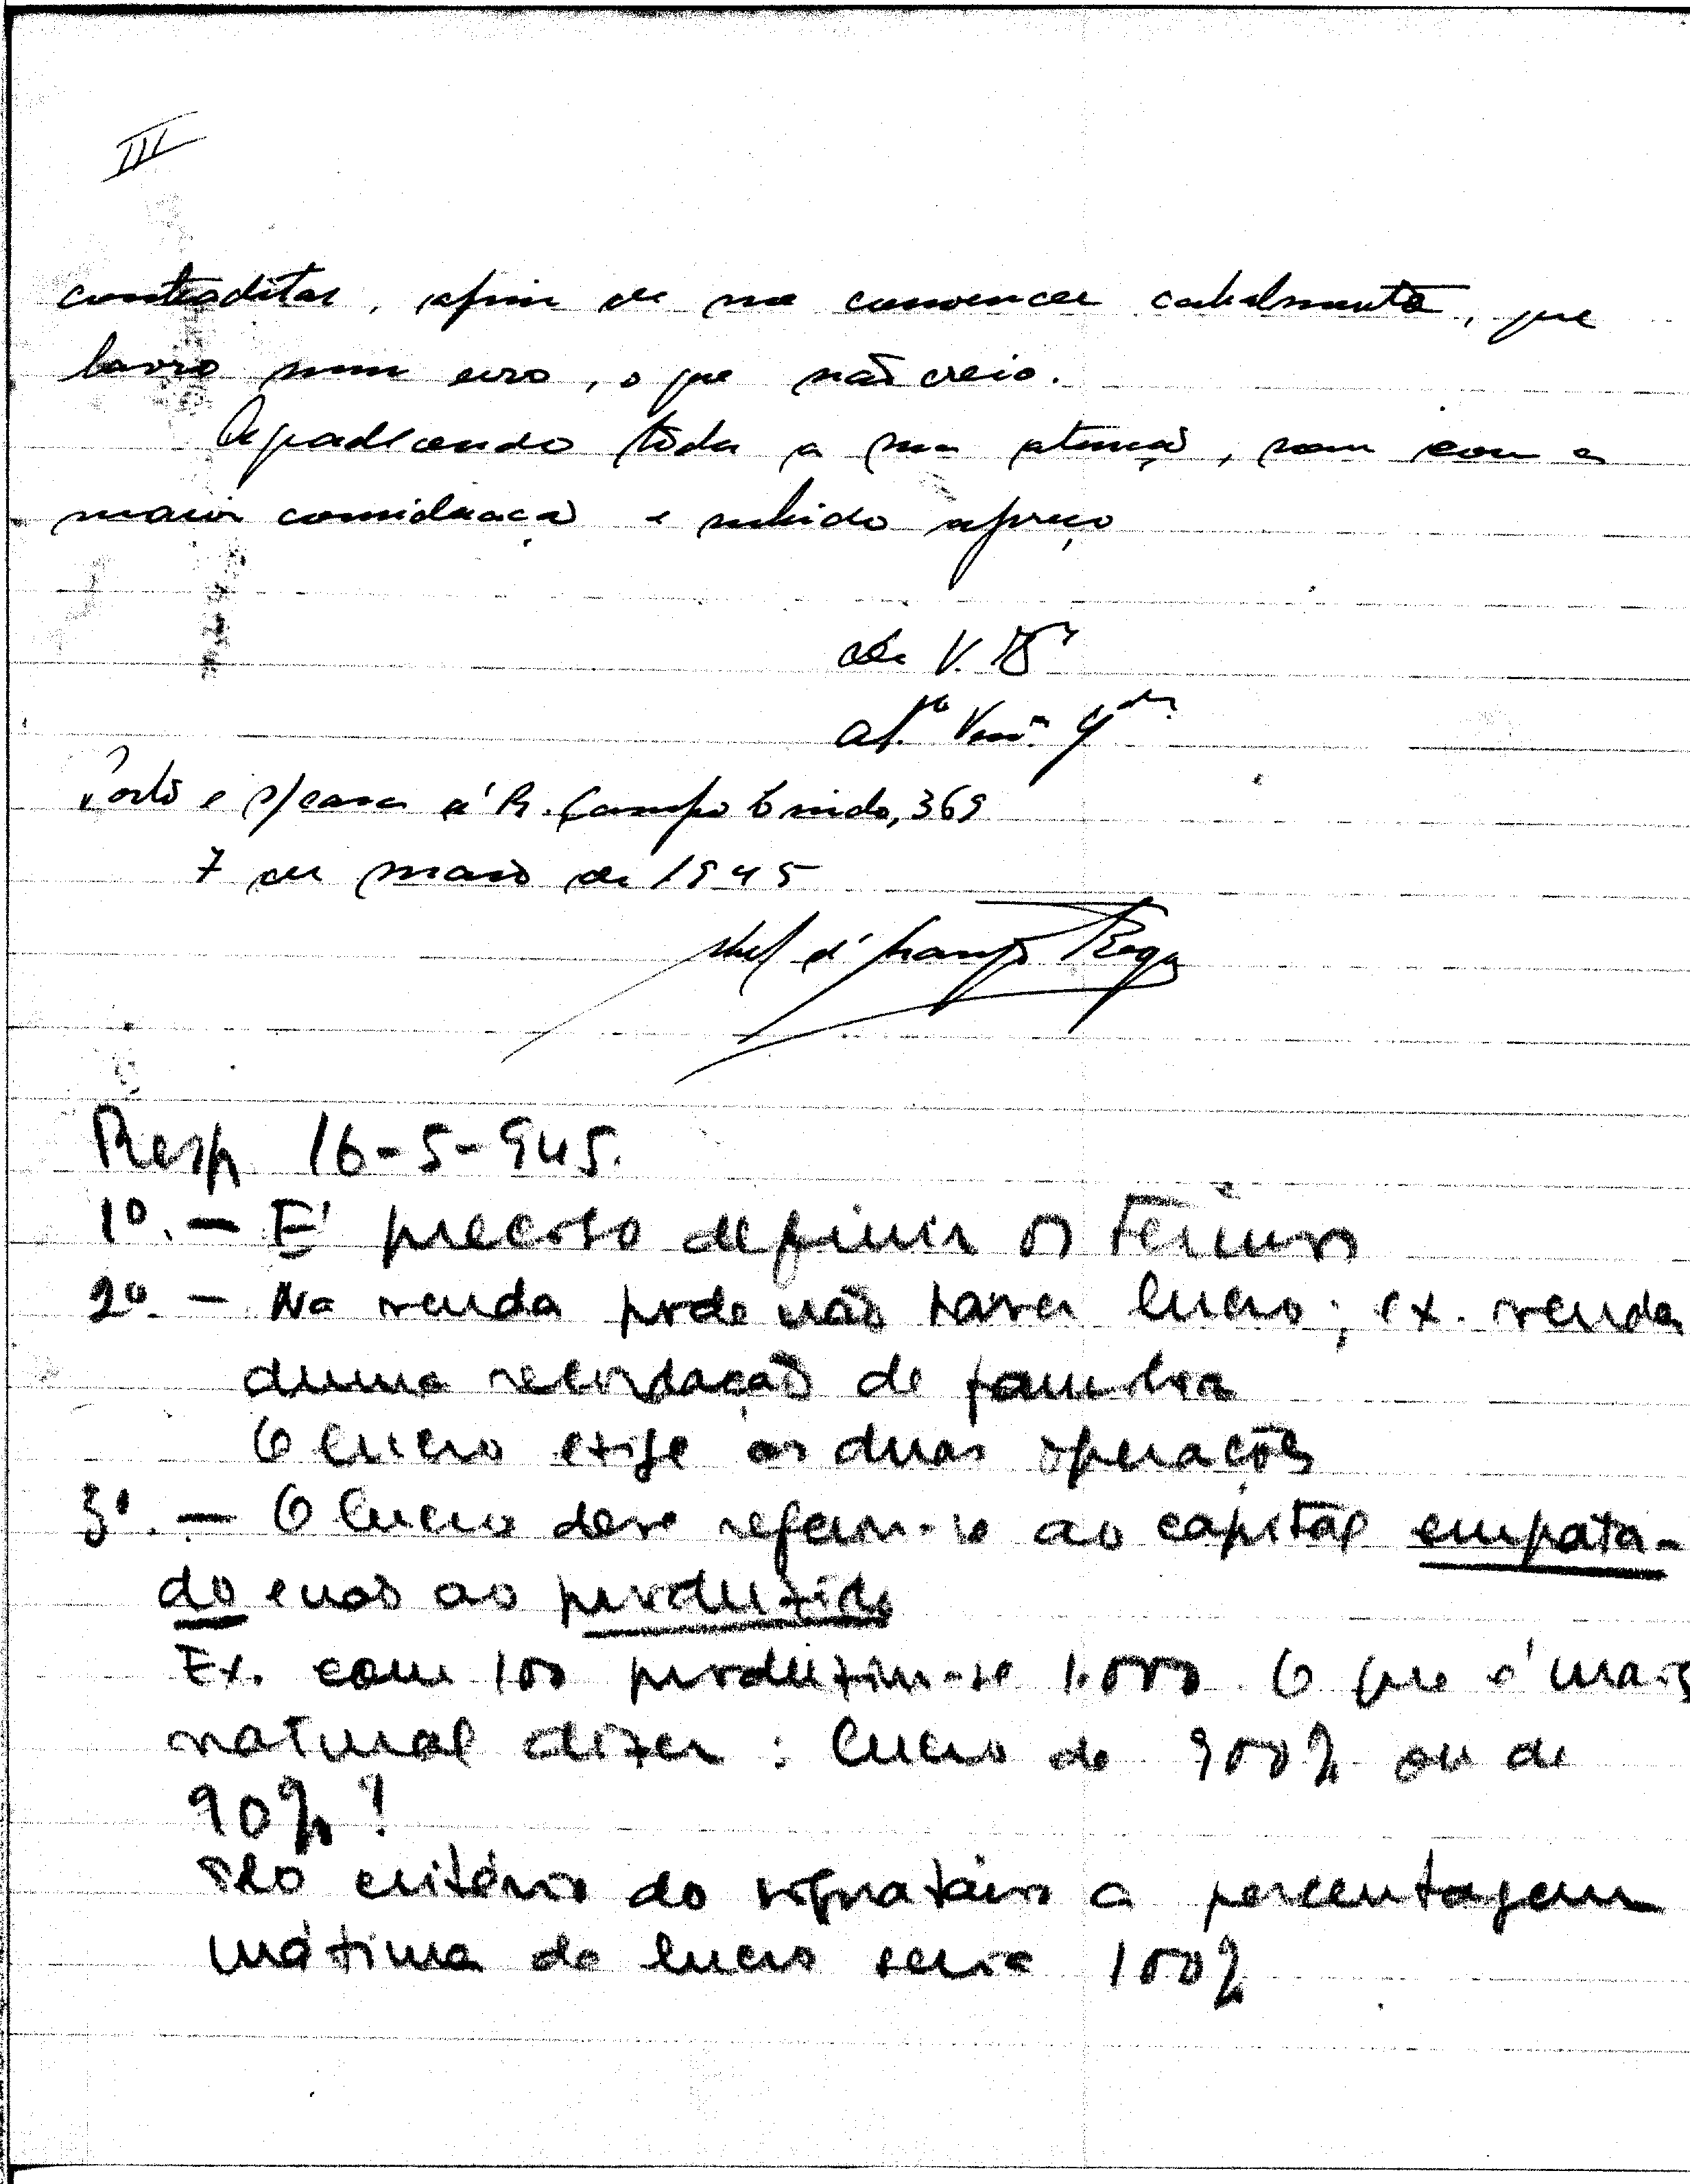 III
contraditas, afim de me convencer cabalmente, que
lavro num erro, o que não creio.
Agradecendo tôda a sua atenção, sou com a
maior consideração e subido apreço
de V. Exª
At.º Ven.or
Porto e s/casa á R. Campo Lindo, 369
7 de maio de 1945
Resp 16-5-945.
1º. — E' preciso definir os termos
2º. — Na venda pode não haver lucro; ex. venda
duma recordação de familia
O lucro exige as duas operações
3º. — O lucro deve referir-se ao capital empata-
do e não ao produzido
Ex. com 100 produzim-se 1.000. O que é mais
natural dizer: lucro de 900% ou de
90%?
Pelo critério do signatário a percentagem
máxima de lucro seria 100%